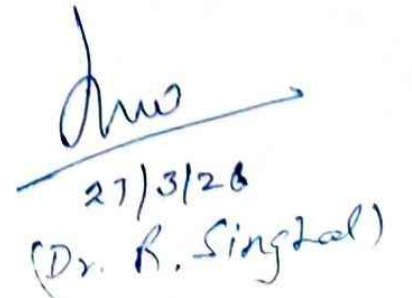 27/3/26
(Dr. R. Singhal)